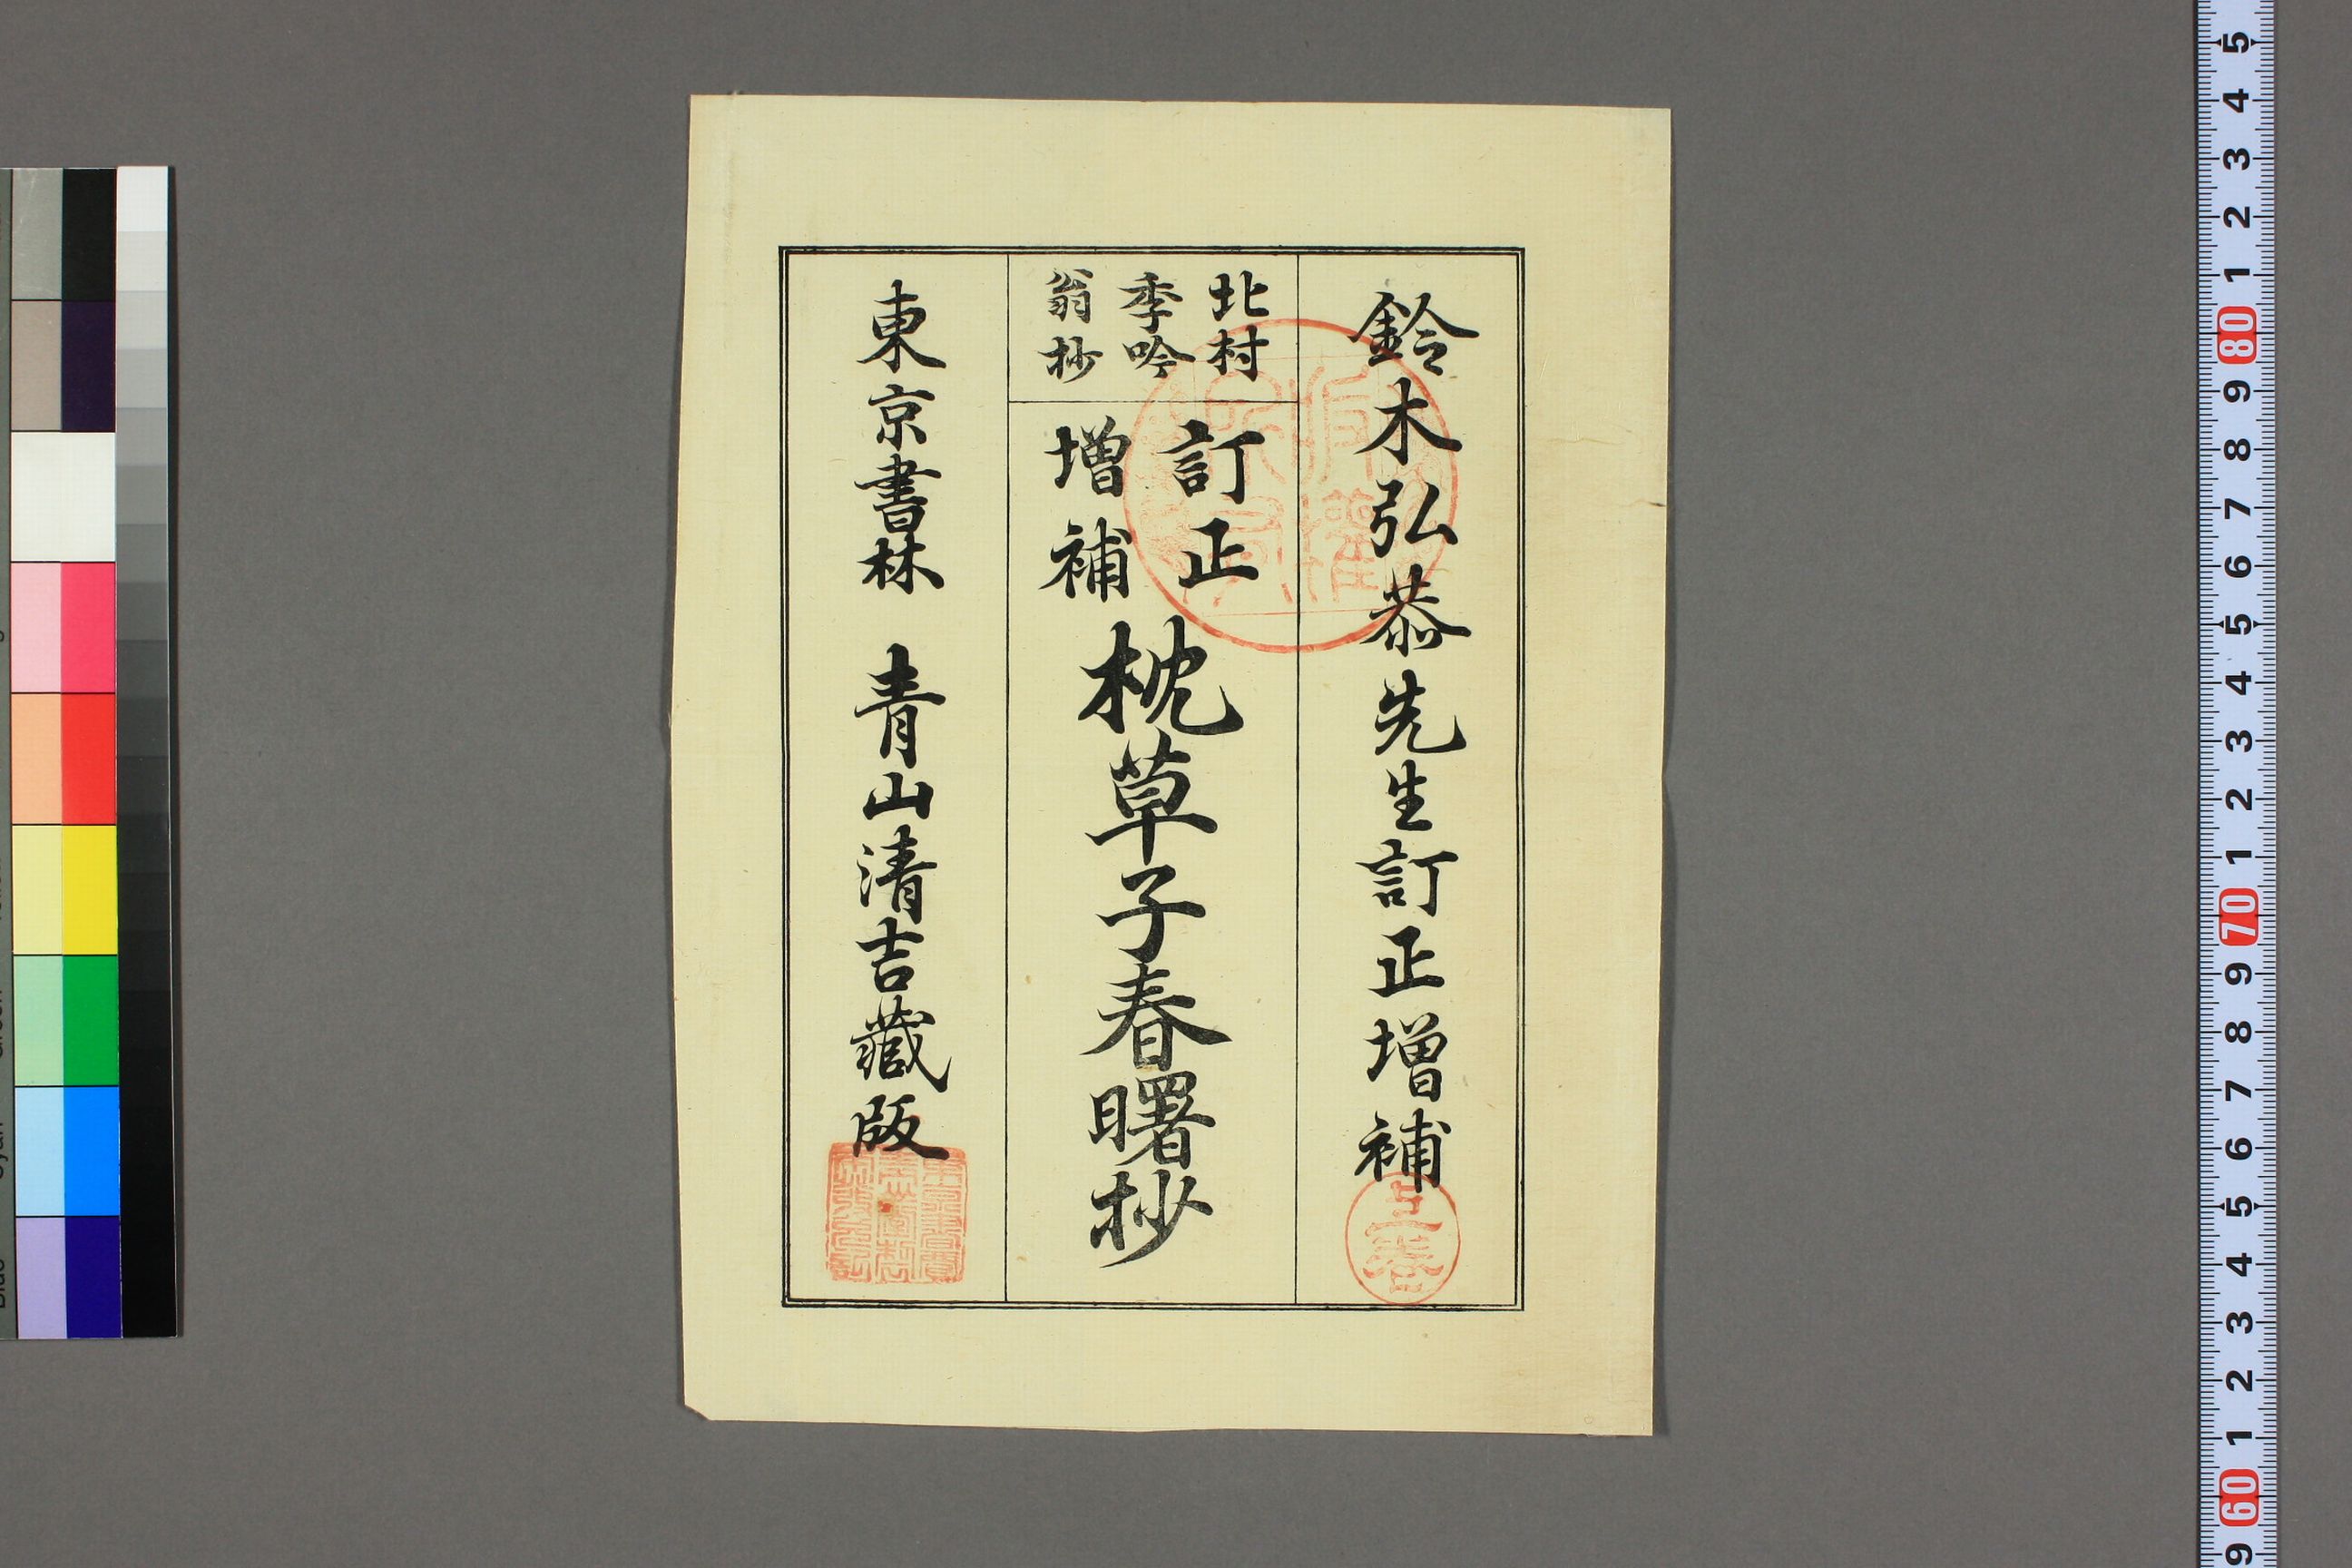 鈴木弘恭先生訂正増補
北村
季吟
翁抄
訂正
増補
枕草子春曙抄
東京書林 青山清吉藏版
版權
所有
5 4 3 2 1 80 9 8 7 6 5 4 3 2 1 70 9 8 7 6 5 4 3 2 1 60 9